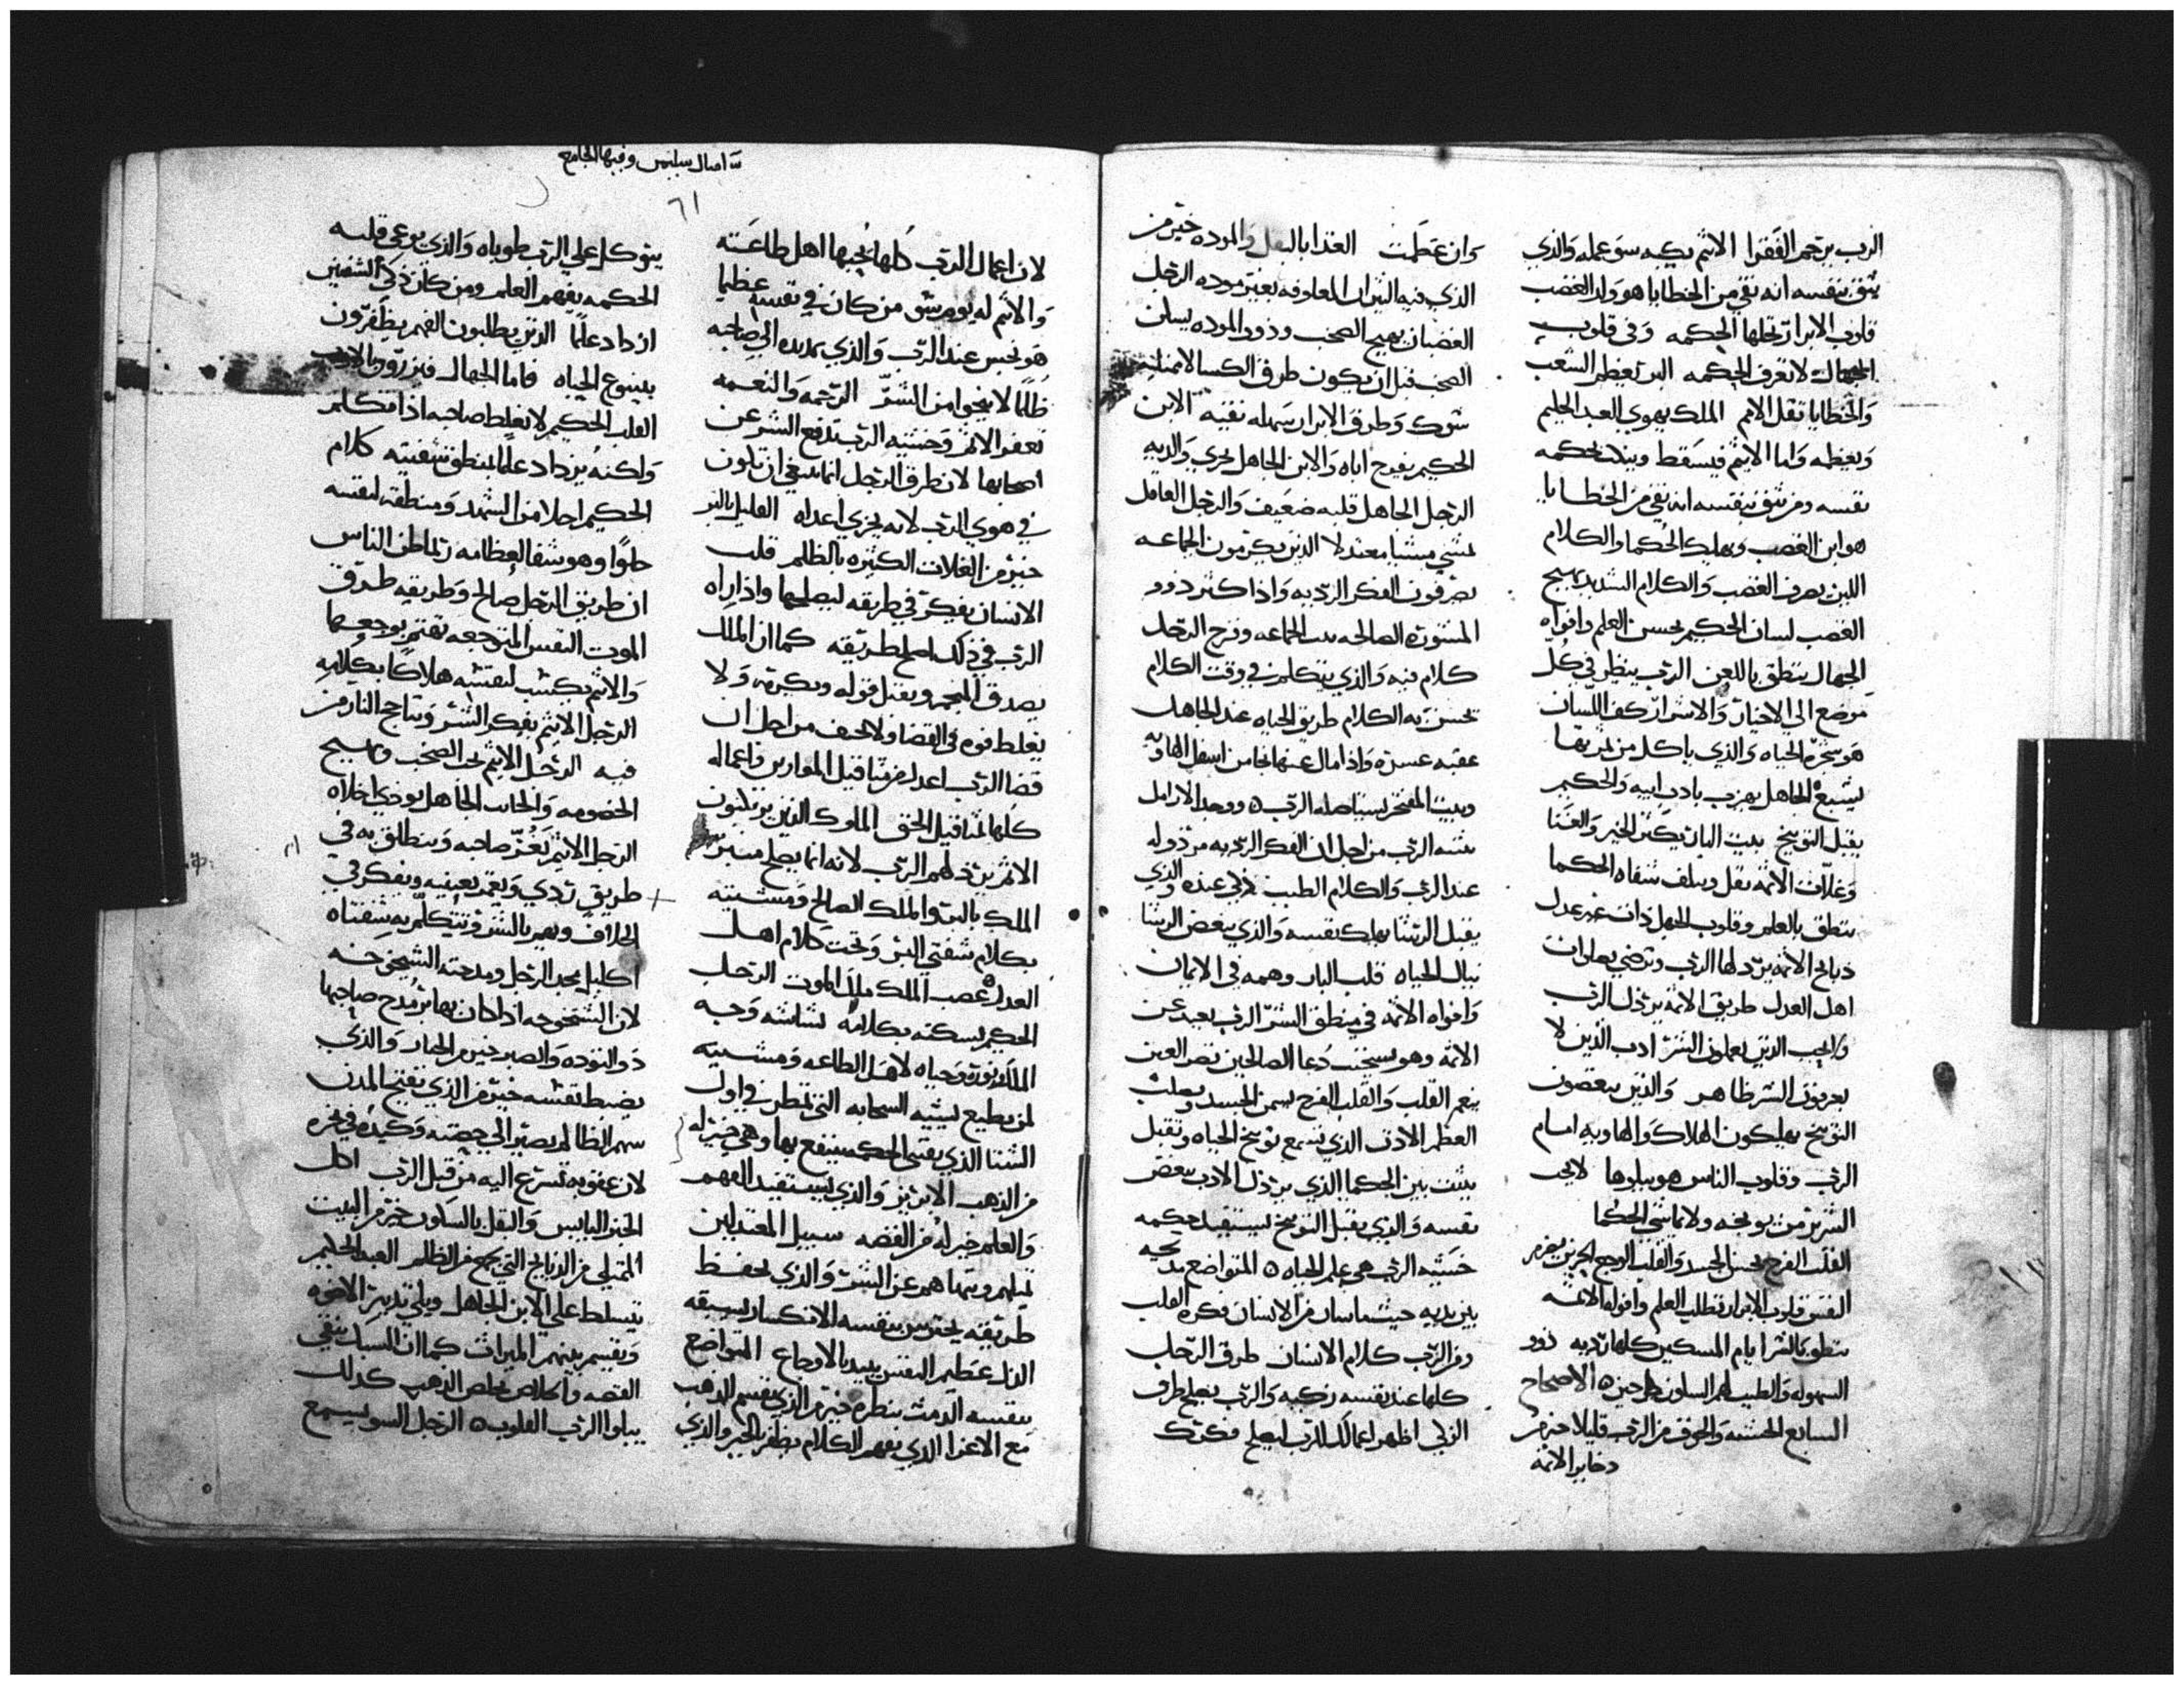 الرب يرحم الفقرا الاثيم يكبه سو عمله والذي
يثق بنفسه انه نقي من الخطايا هو ولد الغضب
قلوب الابرار تحلها الحكمه وفي قلوب
الجهال لا تعرف الحكمه البر يعظم الشعب
والخطايا تقلل الامم الملك يهوي العبد الحليم
ويعظمه واما الاثيم فيسقط ويهلك بحكمه
نفسه ومن يثق بنفسه انه نقي من الخطايا
هو ابن الغضب ويهلك الحكما والكلام
اللين يصرف الغضب والكلام الشديد يهيج
الغضب لسان الحكيم يحسن العلم وافواه
الجهال ينطق باللعن الرب ينظر في كل
موضع الي الاخيار والاشرار كف اللسان
هو شجرة الحياه والذي ياكل من ثمرتها
يشبع الجاهل يهزي بادب ابيه والحكيم
يقبل التوبيخ بيت البار يكثر الخير والغنا
وغلات الاثمه تقل وتتلف شفاه الحكما
ينطق بالعلم وقلوب الجهل ذات غير عدل
ذبايح الاثمه يرذلها الرب وترضي بصلوات
اهل العدل طريق الاثمه يرذل الرب
ويحب الذين يعملون البر ادب الذين لا
يعرفون الشر ظاهر والذين يبغضون
التوبيخ يهلكون الهلاك والهاويه امام
الرب وقلوب الناس هو يبلوها لا يحب
الشرير من يوبخه ولا يماشي الحكما
القلب الفرح يحسن الجسد والقلب الوجع الحزين يغم
النفس قلوب الابرار تطلب العلم وافواه الاثمه
ينطق بالشر ايام المسكين كلها رديه ذوو
السهوله والطيب لهم السلون كل حين الاصحاح
السابع الخشيه والخوف من الرب قليلا خير من
ذخاير الاثمه
وان عظمت الغدا بالبقل والموده خير من
الذي فيه الثيران المعلوفه بغير موده الرجل
الغضبان يهيج الصخب وذو الموده يسكن
الصخب قبل ان يكون طرق الكسالا
شوك وطرق الابرار سهله نقيه الابن
الحكيم يفرح اباه والابن الجاهل يخزي والديه
الرجل الجاهل قلبه ضعيف والرجل العاقل
يمشي مشيا معتدلا الذين يكرمون الجماعه
يصرفون الفكر الرديه واذا كثر ذوو
المشوره الصالحه الجماعه وفرح الرجل
كلام فيه والذي يتكلم في وقت الكلام
تحسن به الكلام طريق الحياه عند الجاهل
عقبه عسره واذا مال عنها نجا من اسفل الهاويه
وبيت المفتخر يستاصله الرب ووجد الارامل
يثبته الرب من اجل ان الفكر الرديه مرذوله
عند الرب والكلام الطيب زكي عنده والذي
يقبل الرشا يهلك نفسه والذي يبغض الرشا
ينال الحياه قلب البار وهمه في الايمان
وافواه الاثمه في منطق الشر الرب بعيد عن
الاثمه وهو يستجيب دعا الصالحين نظر العين
ينعم القلب والقلب الفرح يسمن الجسد ويصلب
العظم الاذن الذي تسمع توبيخ الحياه وتقبل
يثبت بين الحكما الذي يرذل الادب يبغض
نفسه والذي يقبل التوبيخ يستفيد حكمه
خشيه الرب هي علم الحياه المتواضع مدحته
بين يديه حيث ما سار من الانسان فكره القلب
ومن الرب كلام الانسان طرق الرجل
كلها عند نفسه زكيه والرب يصلح طرق
الزكي اظهر اعمالك للرب ليصلح فكرتك
امثال سليمن وفيها الجامع
٦١
لان اعمال الرب كلها يحبها اهل طاعته
والاثيم له يوم شر من كان في نفسه عظيما
هو نجس عند الرب والذي يمد يده الي صاحبه
ظلما لا ينجو من الشر الرحمه والنعمه
تغفر الاثم وخشيه الرب تدفع الشر عن
اصحابها لان طرق الرجل انما ينبغي ان تكون
في هوي الرب لانه يخزي اعداه القليل بالبر
خير من الغلات الكثيره بالظلم قلب
الانسان يفكر في طريقه ليصلحها واذا راه
الرب في ذلك اصلح طريقه كما ان الملك
يصدق المنجم ويقبل قوله ويكرمه ولا
يغلط فوه في القضا ولا يحيف من اجل ان
قضا الرب اعدل من مثاقيل الموازين واعماله
كلها مثاقيل الحق الملوك الذين يرتكبون
الاثم يرذلهم الرب لانه انما يصلح منبر
الملك بالبر والملك الصالح ومشيته
بكلام شفتي البر وتحت كلام اهل
العدل غضب الملك ملك الموت الرجل
الحكيم يسكنه بكلامه بشاشه وجه
الملك نوره وحياه لاهل الطاعه ومشيته
لمن يطيع يشبه السحابه التي تمطر في اول
الشتا الذي يقتني الحكمه ينتفع بها وهي خير له
من الذهب الابريز والذي يستفيد الفهم
والعلم خير له من الفضه سبيل المعتدلين
تميلهم وتنهاهم عن الشر والذي يحفظ
طريقه يحترس بنفسه الانكسار يسبقه
الذل عظيم النفس يبيد بالاوجاع المتواضع
بنفسه الدمث بنظره خير من الذي يقسم الذهب
مع الاعزا الذي يفهم الكلام يظفر بالخير والذي
يتوكل علي الرب طوباه والذي يوعي قلبه
الحكمه يفهم العلم ومن كان ذكي الشفتين
ازداد علما الذين يطلبون الفهم يظفرون
بينبوع الحياه فاما الجهال فيزرون بالادب
القلب الحكيم لا يغلط صاحبه اذا تكلم
ولكنه يزداد علما بمنطق شفتيه كلام
الحكيم احلا من الشهد ومنطقه لنفسه
حلوا وهو شفا لعظامه رب ما ظن الناس
ان طريق الرجل صالح وطريقه طرق
الموت النفس المتوجعه تغتم بوجعها
والاثيم يكتسب لنفسه هلاكا بكلامه
الرجل الاثيم يفكر الشر وتتاجج النار من
فيه الرجل الاثيم يحب الصخب ويهيج
الخصومه والجاهل يوذي اخلاه
الرجل الاثيم يغر صاحبه وينطلق به في
طريق ردي ويغمز بعينيه ويفكر في
الخلاف ويهم بالشر وتتكلم به شفتاه
اكليل مجد الرجل ومدحته الشيخوخه
لان الشيخوخه اذا كان بها بر مدح صاحبها
ذو التوده والصبر خير من الجبار والذي
يضبط نفسه خير من الذي يفتح المدن
سهم الظالم يصير الي حضنه وكيده في نحره
لان عقوبه تسرع اليه من قبل الرب اكل
الخبز اليابس والبقل بالسكون خير من البيت
الممتلي من الذبايح التي تجمع من الظلم العبد الحليم
يتسلط علي الابن الجاهل ويلي تدبير الاخوه
ويقسم بينهم الميراث كما ان السباك ينقي
الفضه والخلاص يخلص الذهب كذلك
يبلوا الرب القلوب الرجل السو يسمع